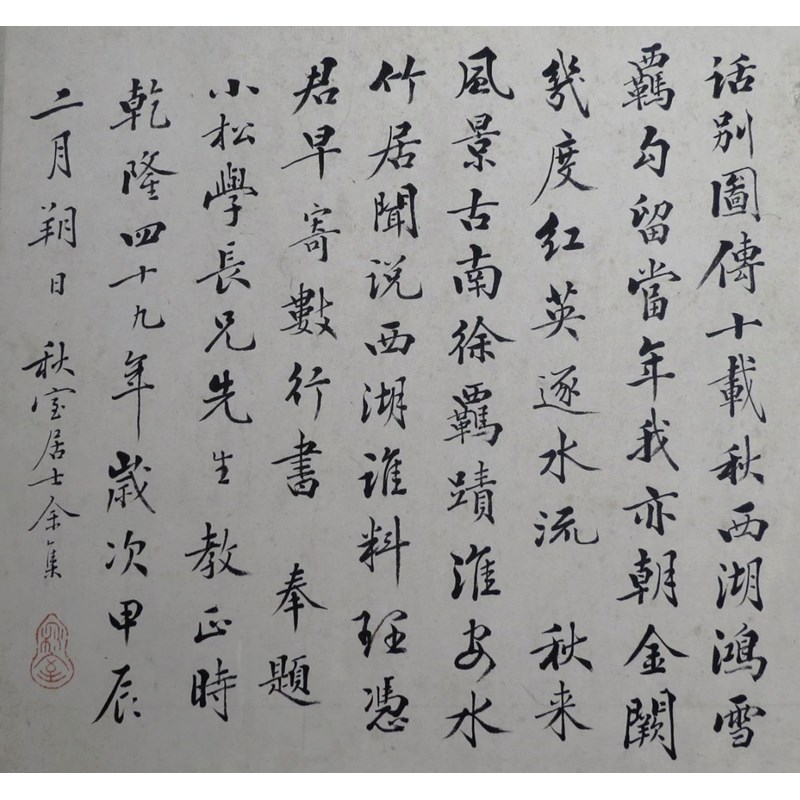 話別圖傳十載秋西湖鴻雪
羈勾留當年我亦朝金闕
幾度紅英逐水流 秋来
風景古南徐羈蹟淮安水
竹居聞説西湖誰料理憑
君早寄數行書 奉題
小松學長兄先生教正時
乾隆四十九年歲次甲辰
二月朔日 秋室居士余集
秋室